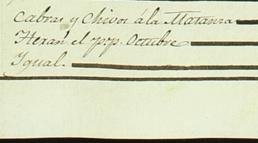 Cabras y Chivos á la Matanza
el Octubre
Igual.